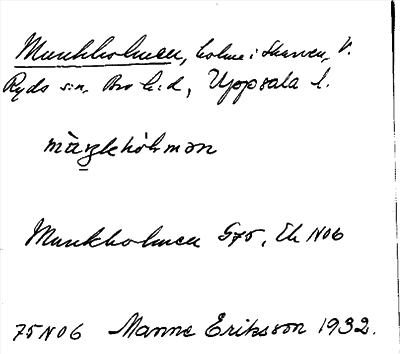 Munkholmen, holme i Skarven, V.
Ryds s:n, Bro h:d, Uppsala l.
Munkholmen G75, Ek N06
75N06 Manne Eriksson 1932.